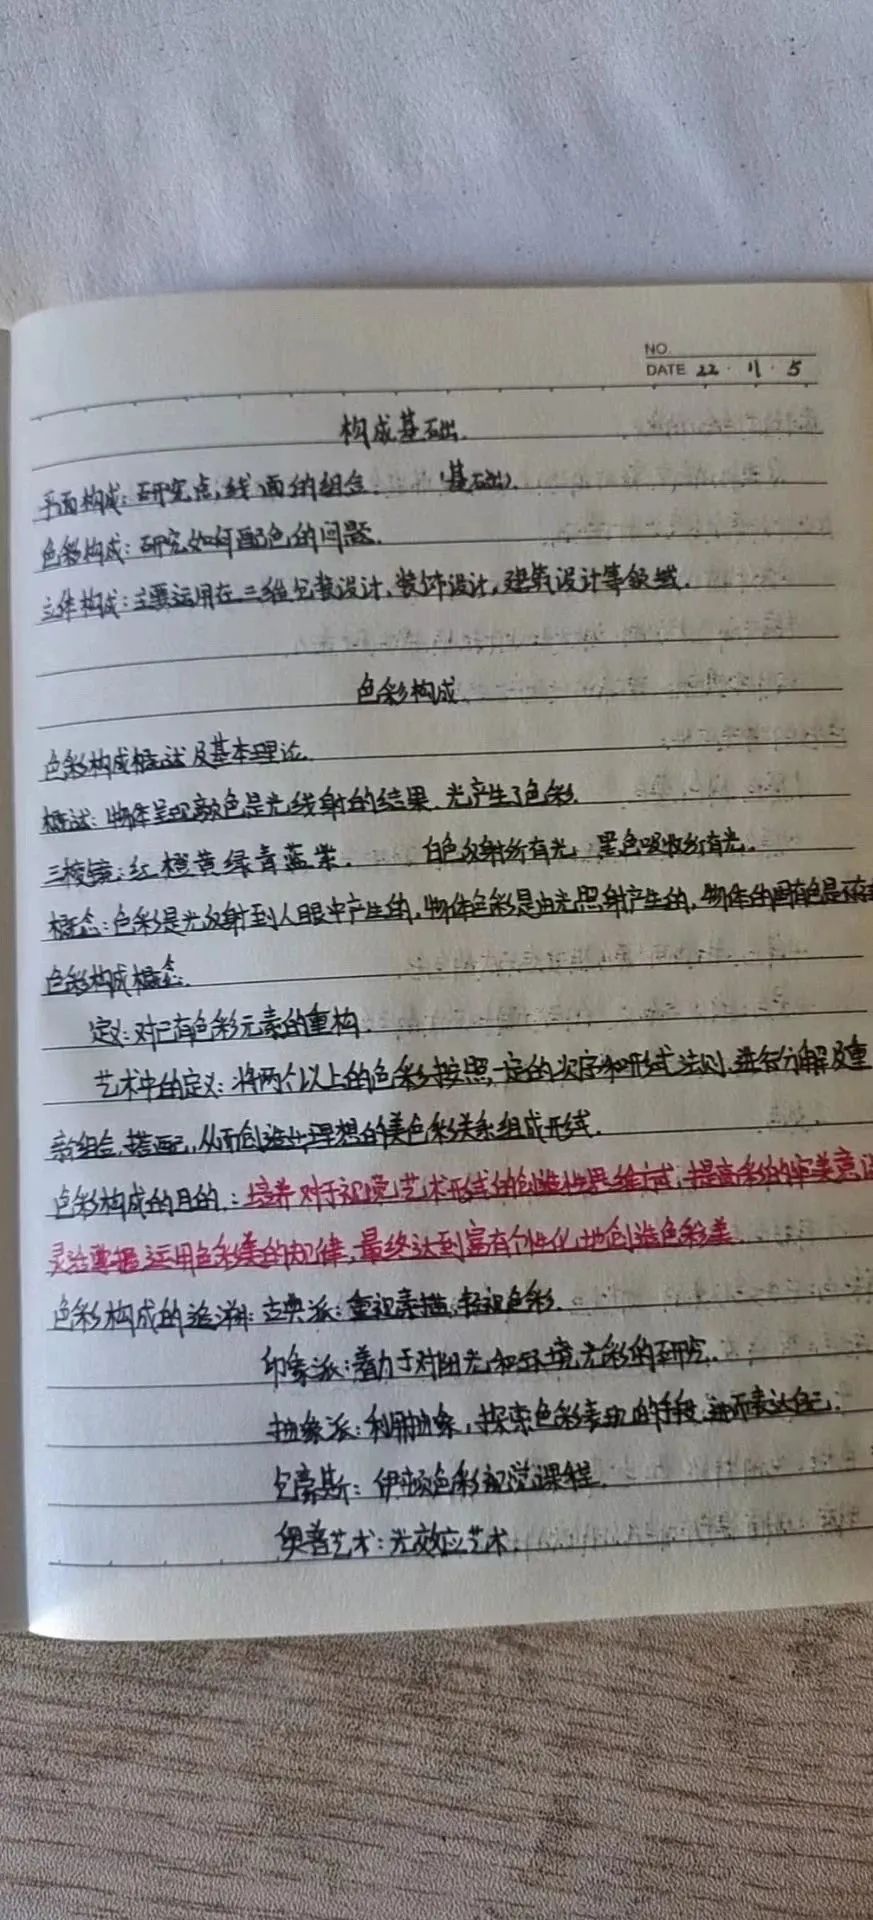 NO.
DATE 22 · 11 · 5
构成基础.
平面构成:研究点,线,面的组合. (基础)
色彩构成:研究如何配色的问题.
立体构成:主要运用在三维包装设计,装饰设计,建筑设计等领域.
色彩构成
色彩构成概述及基本理论.
概述:物体呈现颜色是光线射的结果.光产生了色彩.
三棱镜:红橙黄绿青蓝紫. 白色反射所有光,黑色吸收所有光.
概念:色彩是光反射到人眼中产生的,物体色彩是由光照射产生的,物体的固有色是不存
色彩构成概念.
定义:对已有色彩元素的重构.
艺术中的定义:将两个以上的色彩按照一定的次序和形式法则,进行分解及重
新组合,搭配,从而创造出理想的美色彩关系组成形式.
色彩构成的目的:培养对于视觉艺术形式的创造性思维方式,提高色彩的审美意识
灵活掌握运用色彩美的规律,最终达到富有个性化地创造色彩美.
色彩构成的追溯:古典派:重视素描,轻视色彩.
印象派:着力于对阳光和环境光彩的研究.
抽象派:利用抽象,探索色彩表现的手段,进而表达自己.
包豪斯:伊顿色彩视觉课程.
奥普艺术:光效应艺术.